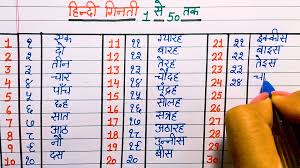 हिन्दी गिनती 1 से 50 तक
1 १ एक 11 ११ ग्यारह 21 २१ इक्कीस
2 २ दो 12 १२ बारह 22 २२ बाइस
3 ३ तीन 13 १३ तेरह 23 २३ तेइस
4 ४ चार 14 १४ चौदह 24 २४ चा
5 ५ पाँच 15 १५ पंद्रह 25
6 ६ छह 16 १६ सोलह 26
7 ७ सात 17 १७ सत्रह 27
8 ८ आठ 18 १८ अठारह 28
9 ९ नौ 19 १९ उन्नीस 29
10 १० दस 20 २० बीस 30